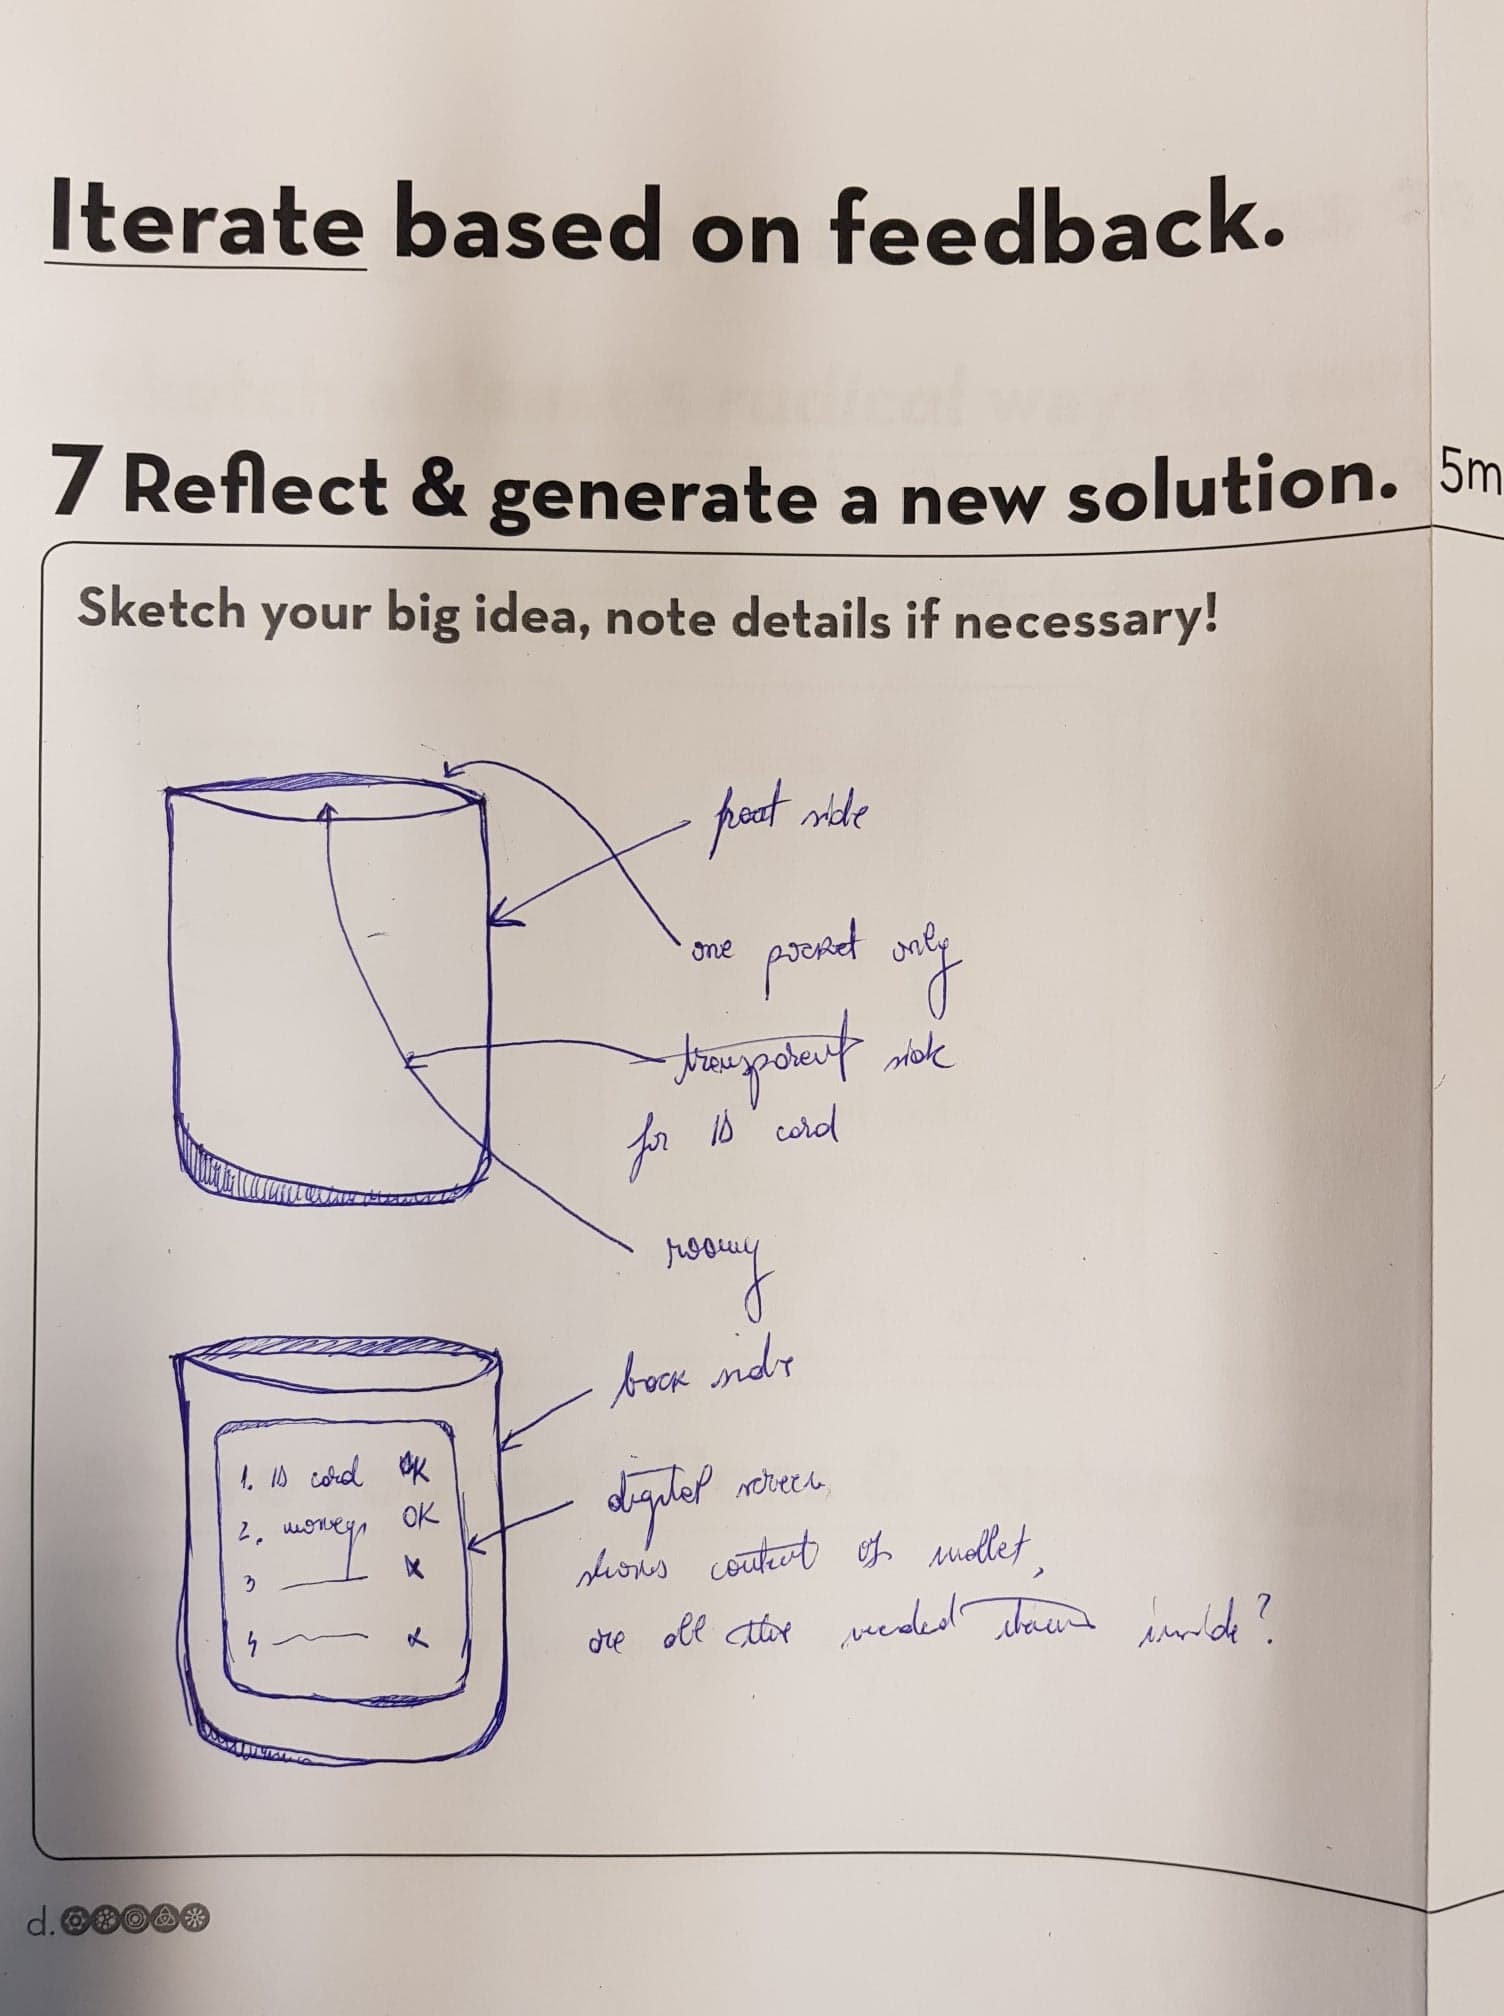 Iterate based on feedback.
7 Reflect & generate a new solution. 5m
Sketch your big idea, note details if necessary!
front side
one pocket only
transparent side
for ID card
roomy
back side
1. ID card OK
2. money OK
3 x
4 x
digital screen,
shows content of wallet,
are all the needed items inside?
d.